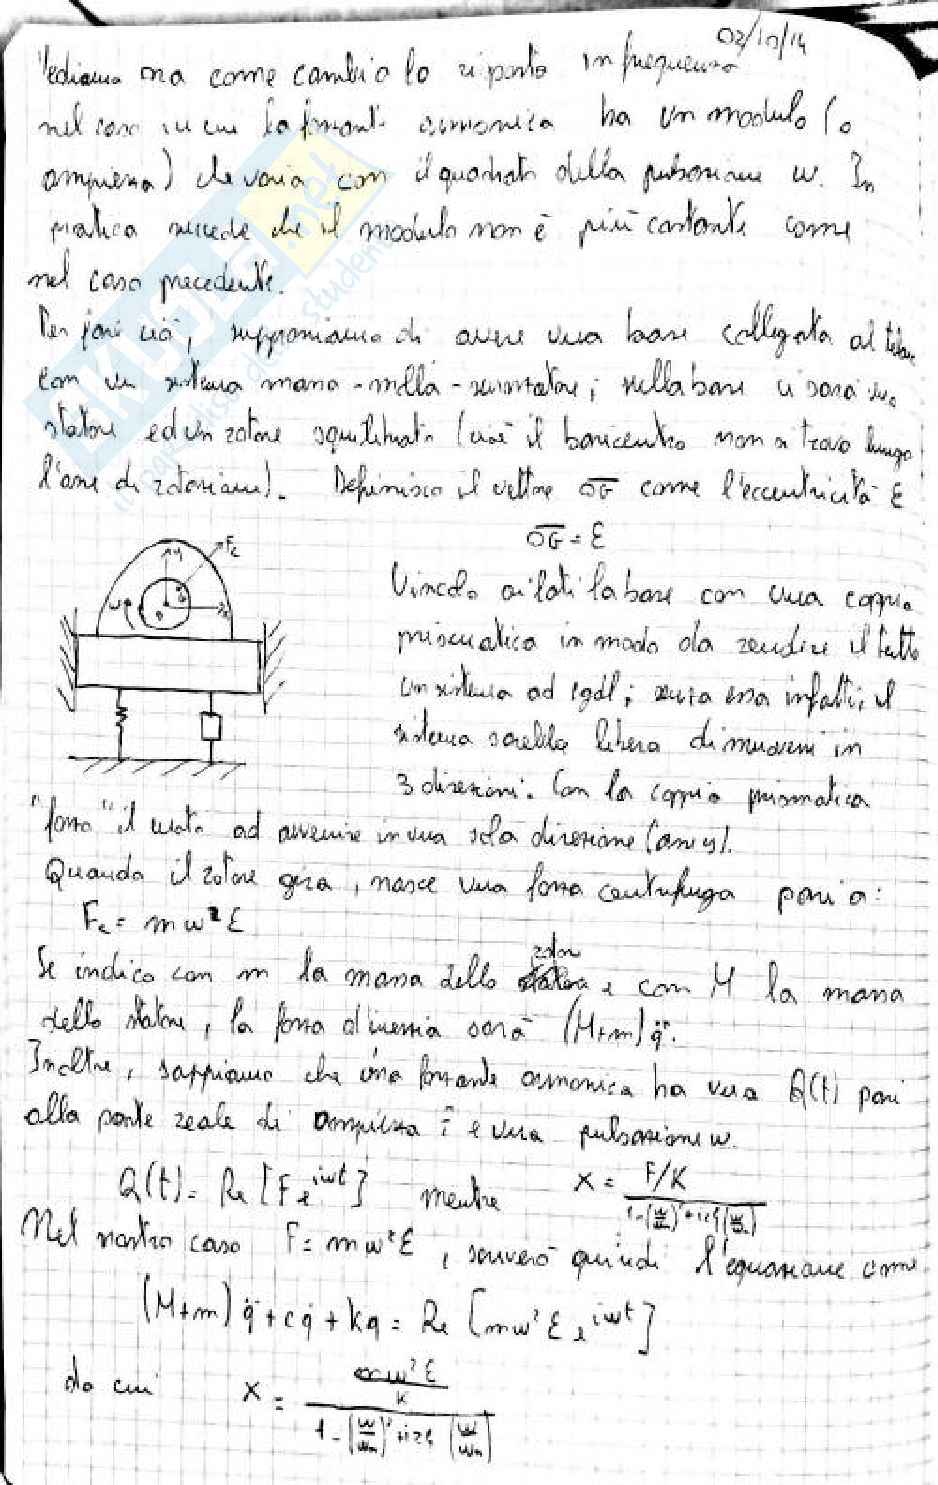 02/10/14
Vediamo ora come cambia la risposta in frequenza
nel caso in cui la forzante armonica ha un modulo (o
ampiezza) che varia con il quadrato della pulsazione w. In
pratica succede che il modulo non è più costante come
nel caso precedente.
Per fare ciò, supponiamo di avere una base collegata al telaio
con un sistema massa-molla-smorzatore; nella base ci sarà uno
statore ed un rotore squilibrato (cioè il baricentro non si trova lungo
l'asse di rotazione). Definisco il vettore OG come l'eccentricità ε
OG = ε
Fc
y
x
w
Vincolo ai lati la base con una coppia
prismatica in modo da rendere il tutto
un sistema ad 1gdl; senza essa infatti, il
sistema sarebbe libero di muoversi in
3 direzioni. Con la coppia prismatica
"forzo" il moto ad avvenire in una sola direzione (asse y).
Quando il rotore gira, nasce una forza centrifuga pari a:
Fc = m w² ε
Se indico con m la massa dello rotore e con M la massa
dello statore, la forza d'inerzia sarà (M+m) q̈.
Inoltre, sappiamo che una forzante armonica ha una Q(t) pari
alla parte reale di ampiezza e una pulsazione w.
Q(t) = Re [F e^iwt] mentre X = F/K / 1-(w/wn)²+i2ξ(w/wn)
Nel nostro caso F = m w² ε, scriverò quindi l'equazione come
(M+m) q̈ + cq̇ + kq = Re [mw² ε e^iwt]
da cui X = mw² ε/K / 1-(w/wn)²+i2ξ(w/wn)